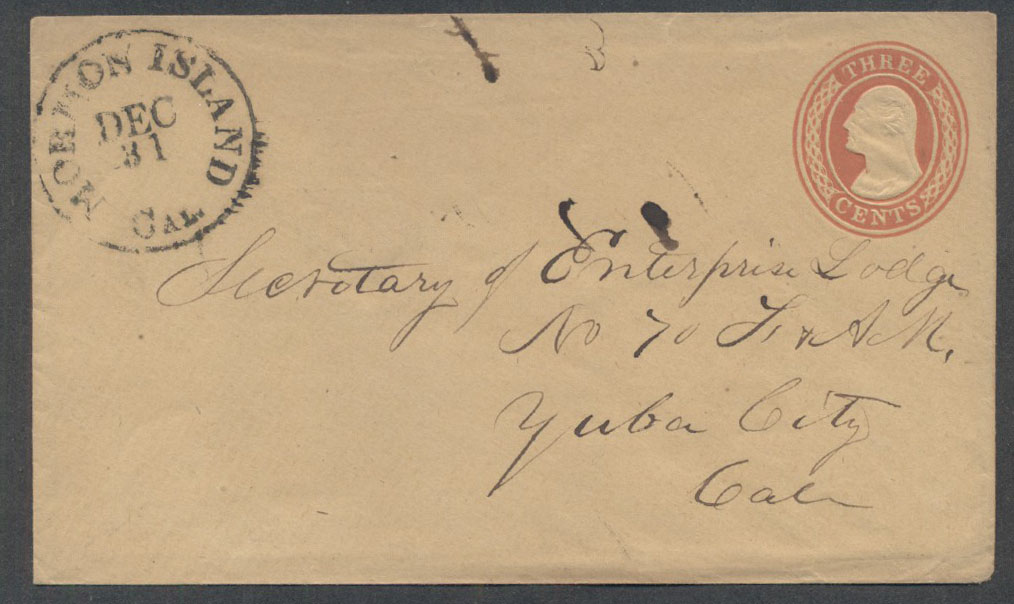 MORMON ISLAND
DEC
31
CAL.
THREE
CENTS
Secretary of Enterprise Lodge
No 70 F & A M.
Yuba City
Cal